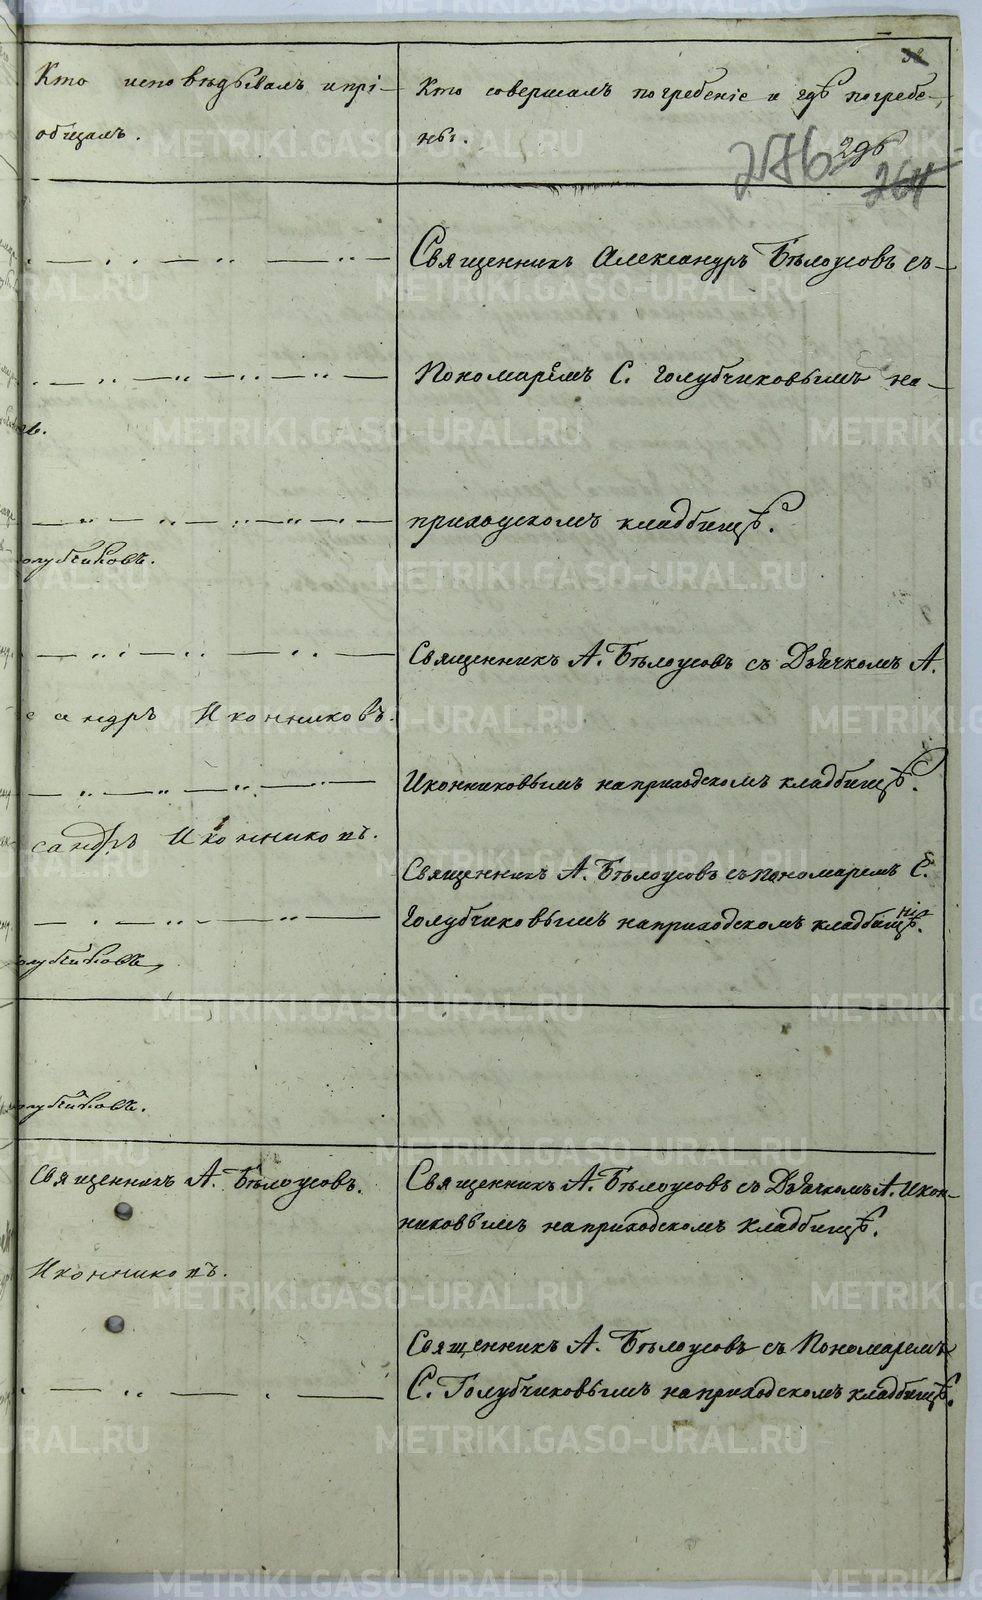 Кто исповѣдывалъ и прі-
общалъ.
Кто совершалъ погребеніе и гдѣ погребе-
ны.
276
264
Священникъ Александръ Бѣлоусовъ съ
Пономаремъ С. Голубчиковымъ на
приходскомъ кладбищѣ.
олубчиковъ.
Священникъ А. Бѣлоусовъ съ Дьячкомъ А.
сандръ Иконниковъ.
Иконниковымъ на приходскомъ кладбищѣ.
сандръ Иконниковъ.
Священникъ А. Бѣлоусовъ съ пономаремъ С.
Голубчиковымъ на приходскомъ кладбищѣ.
олубчиковъ,
олубчиковъ.
Священникъ А. Бѣлоусовъ.
Священникъ А. Бѣлоусовъ съ Дьячкомъ А. Икон-
никовымъ на приходскомъ кладбищѣ.
Иконниковъ.
Священникъ А. Бѣлоусовъ съ Пономаремъ
С. Голубчиковымъ на приходскомъ кладбищѣ.
METRIKI.GASO-URAL.RU